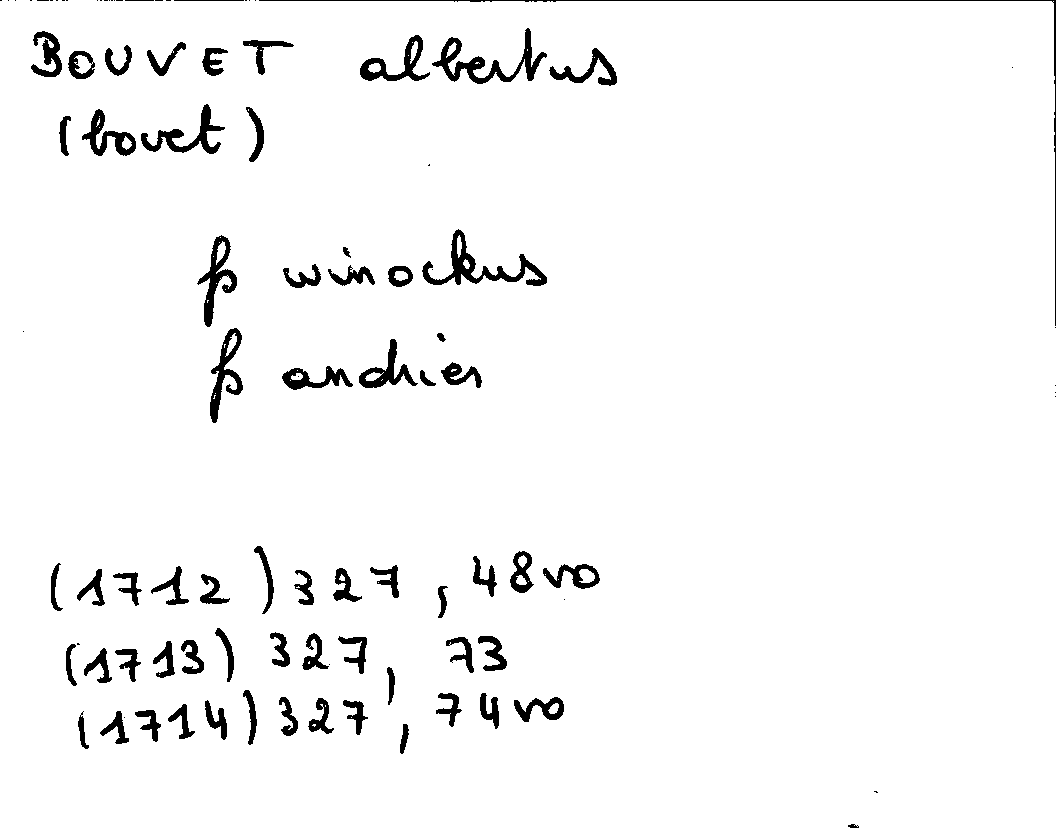 BOUVET albertus
(bovet)
fs winockus
fs andries
(1712) 327, 48vo
(1713) 327, 73
(1714) 327, 74vo